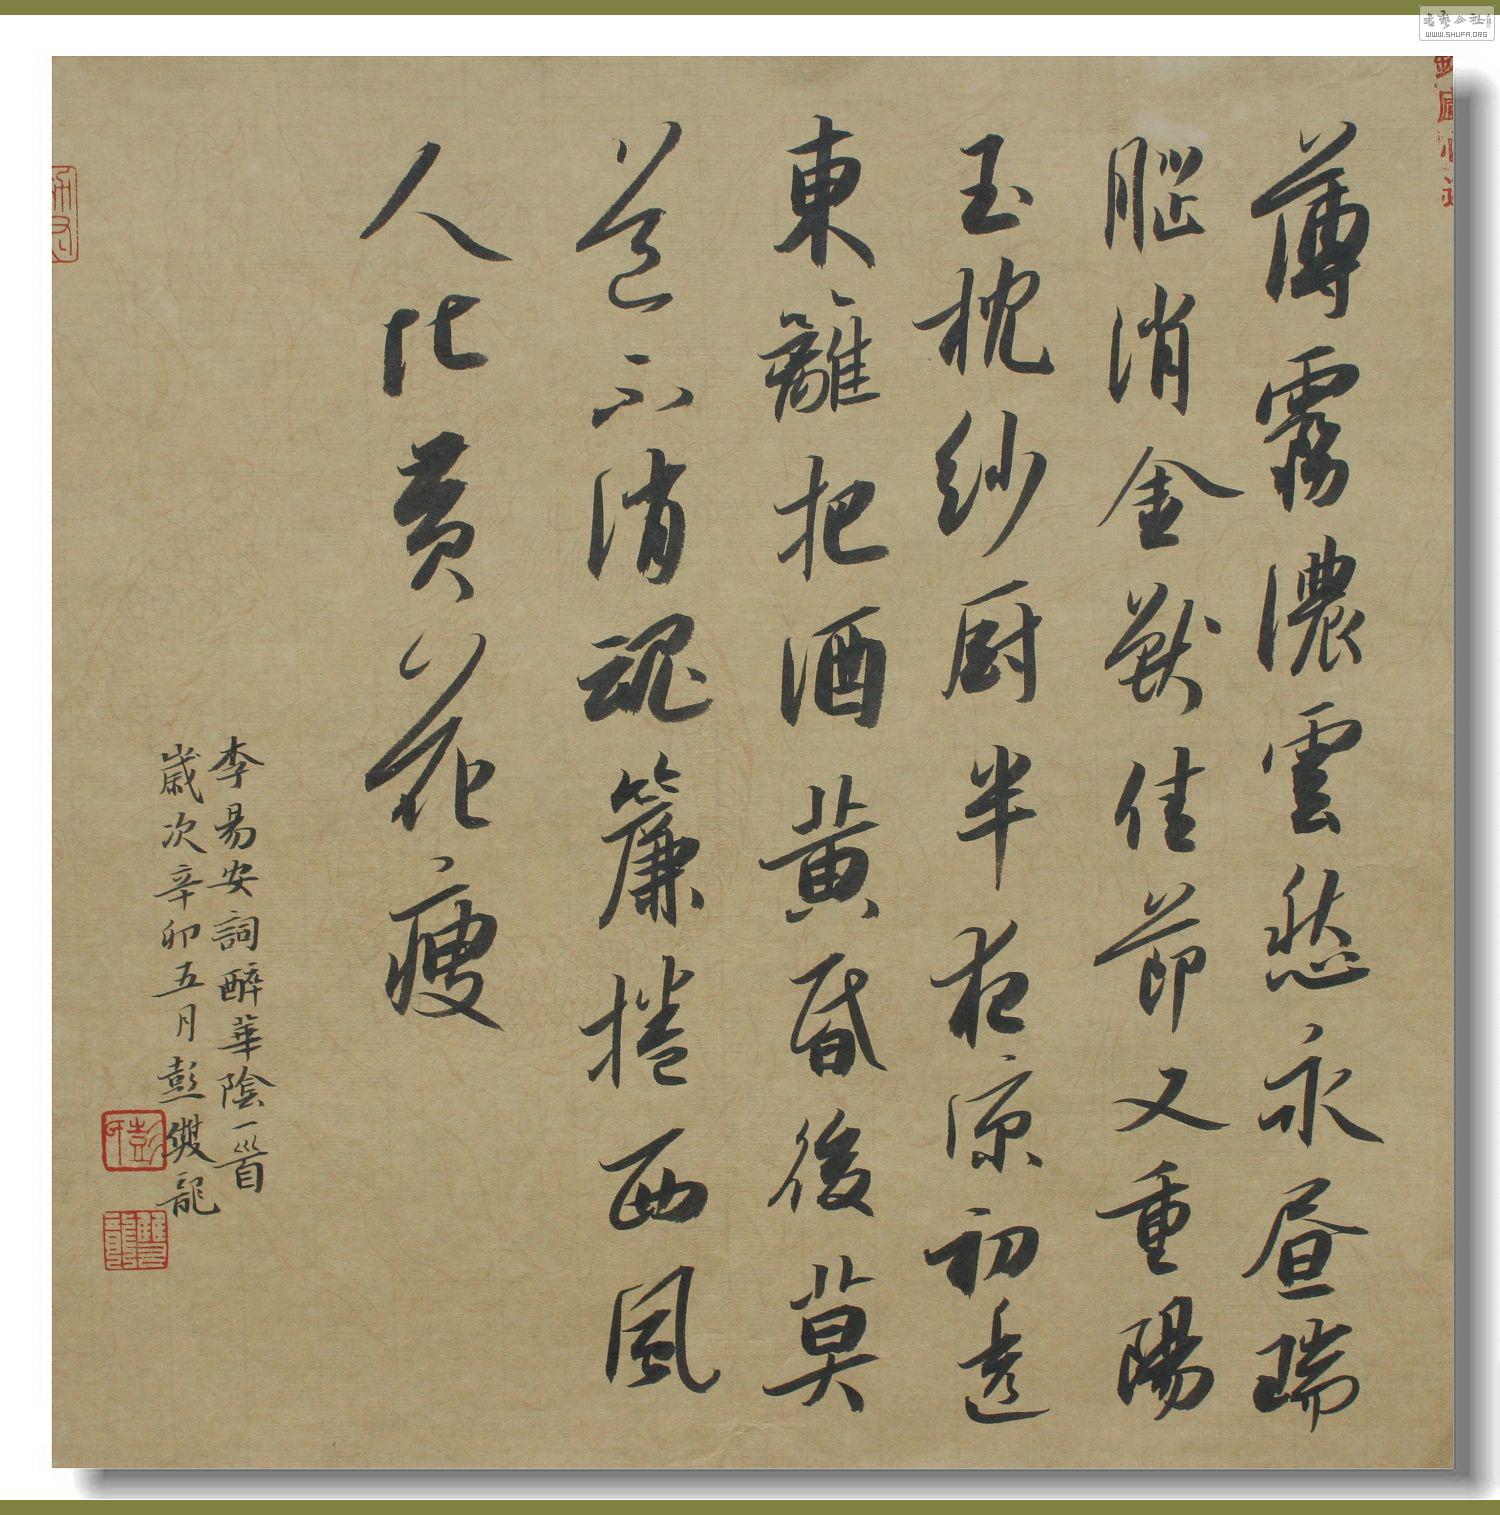 薄霧濃雲愁永昼瑞
脳消金獸佳節又重陽
玉枕紗厨半夜凉初透
東籬把酒黄昏後莫
道不消魂簾捲西風
人比黄花瘦
李易安詞醉華陰一首
歲次辛卯五月彭雙龍
WWW.SHUFA.ORG